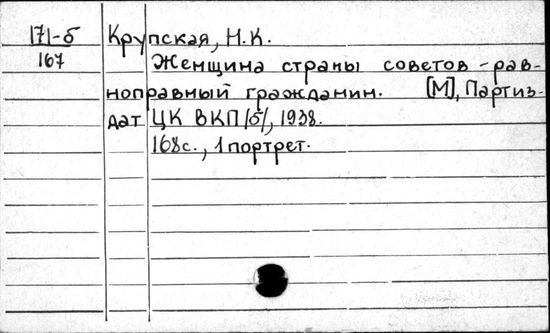 171-б Крупская, Н.К.
167 Женщина страны советов - рав-
ноправный гражданин. [М], Партиз-
дат ЦК ВКП/б/, 1938.
168с., 1 портрет.